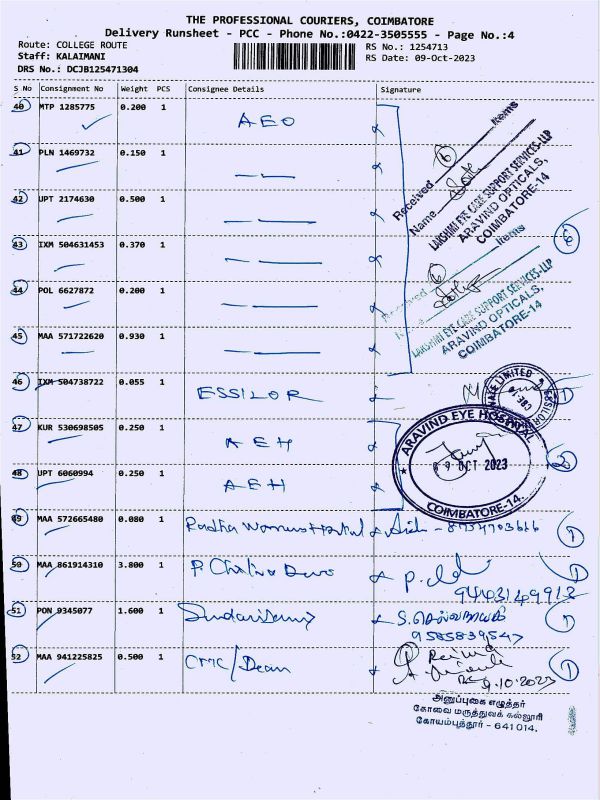 THE PROFESSIONAL COURIERS, COIMBATORE
Delivery Runsheet - PCC - Phone No.:0422-3505555 - Page No.:4
Route: COLLEGE ROUTE
RS No.: 1254713
Staff: KALAIMANI
RS Date: 09-Oct-2023
DRS No.: DCJB125471304
S No Consignment No Weight PCS Consignee Details Signature
40 MTP 1285775 0.200 1 AEO
41 PLN 1469732 0.150 1
42 UPT 2174630 0.500 1
43 IXM 504631453 0.370 1
44 POL 6627872 0.200 1
45 MAA 571722620 0.930 1
Received 6 Items
Name
LAKSHMI EYE CARE SUPPORT SERVICES-LLP
ARAVIND OPTICALS,
COIMBATORE-14
6
Received 6 Items
LAKSHMI EYE CARE SUPPORT SERVICES-LLP
ARAVIND OPTICALS,
COIMBATORE-14
46 IXM 504738722 0.055 1 ESSILOR 1
LIMITED
ESSILOR
47 KUR 530698505 0.250 1 AEH
ARAVIND EYE HOSPITAL
09 OCT 2023
COIMBATORE-14.
2
48 UPT 6060994 0.250 1 AEH
49 MAA 572665480 0.080 1 1
50 MAA 861914310 3.800 1 1
51 PON 9345077 1.600 1 1
9585839547
52 MAA 941225825 0.500 1 CMC/Dean 1
9.10.2023
அனுப்புகை எழுத்தர்
கோவை மருத்துவக் கல்லூரி
கோயம்புத்தூர் - 641 014.